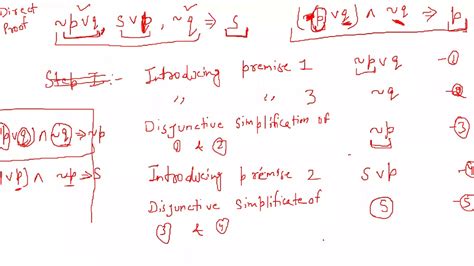 Direct Proof
~p∨q, S∨p, ~q ⇒ S
(~p∨q) ∧ ~q ⇒ p
Step I :- Introducing premise 1 ~p∨q —①
〃 〃 3 ~q —②
p∨q) ∧ ~q ⇒ ~p
Disjunctive simplification of ① & ② ~p —③
∨p) ∧ ~p ⇒ S
Introducing premise 2 S∨p —④
Disjunctive simplificate of ③ & ④ S —⑤